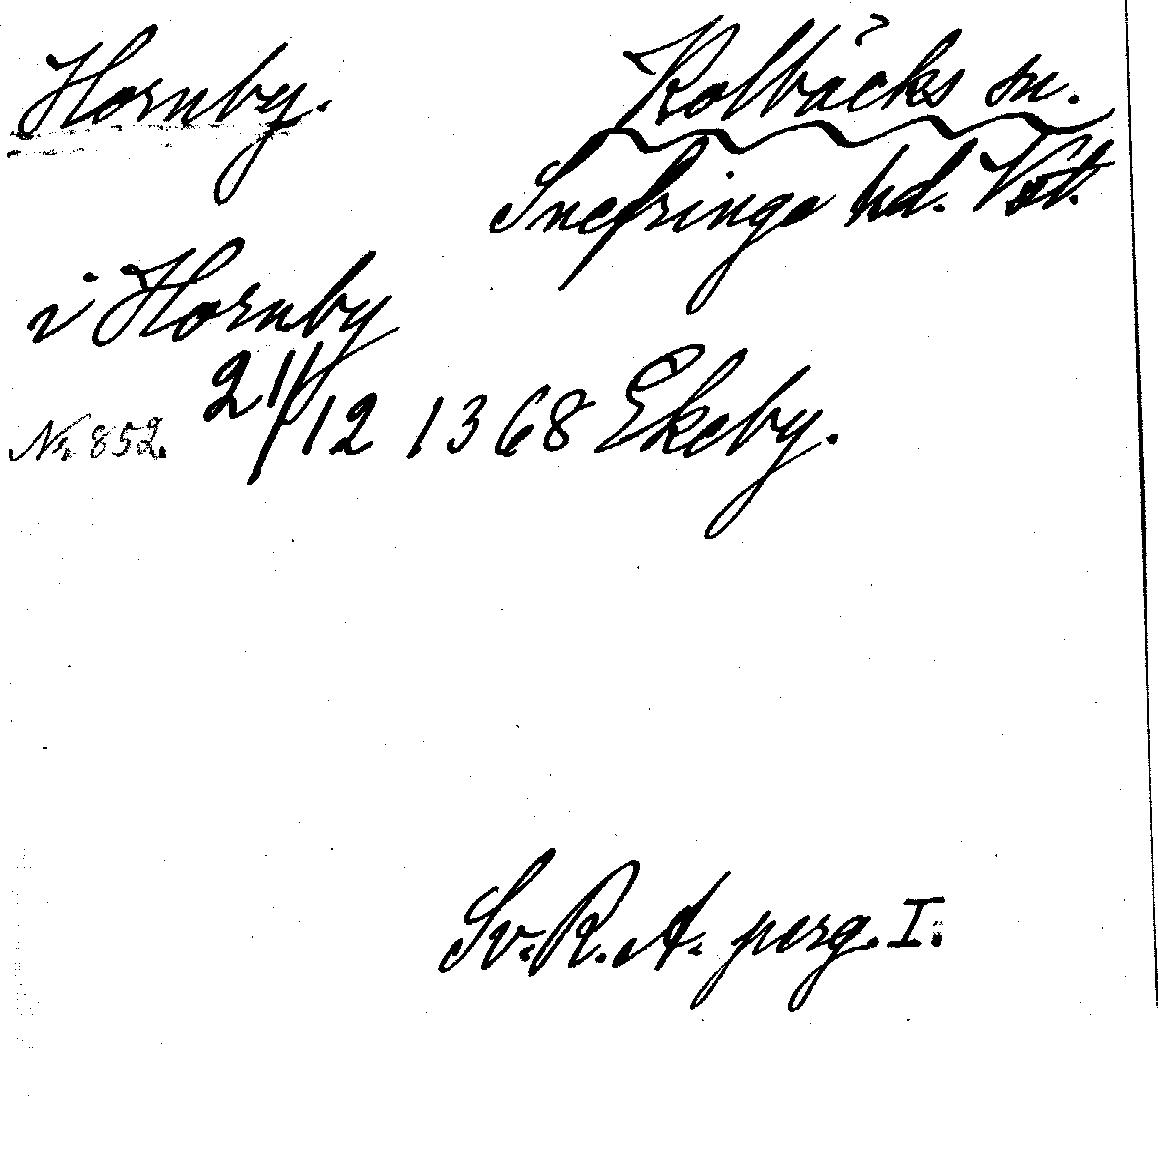 Hornby.
Kolbäcks sn.
Snefringe hd. Vstt.
i Hornby
Nr. 852. 21/12 1368 Ekeby.
Sv. R. A. perg. I.